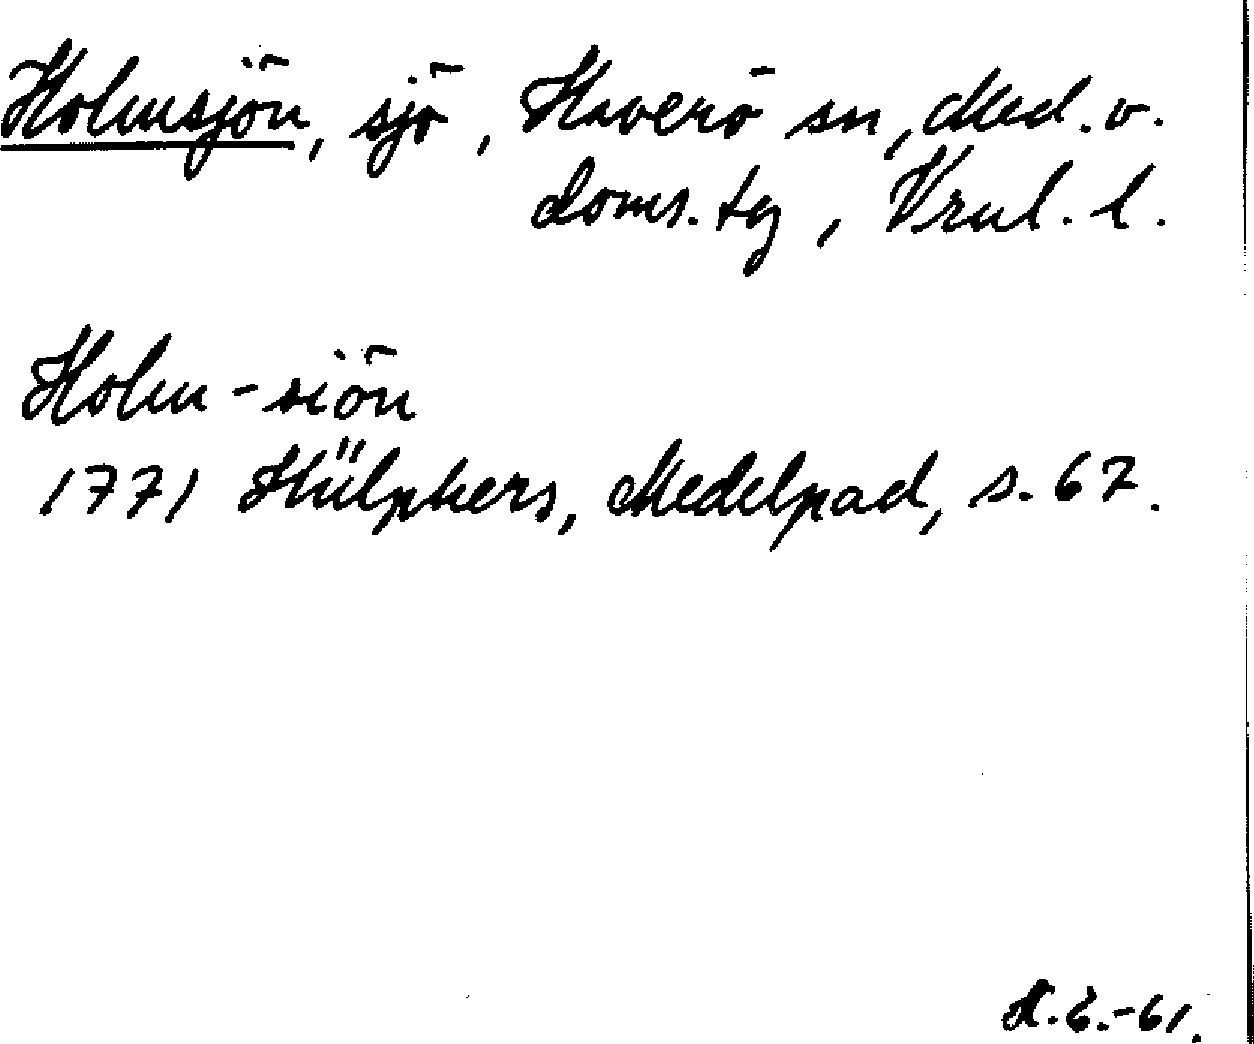 Holmsjön, sjö, Haverö sn, Med. v.
doms. tg, Vrnl. l.
Holm-siön
1771 Hülphers, Medelpad, s. 67.
H.E.-61.